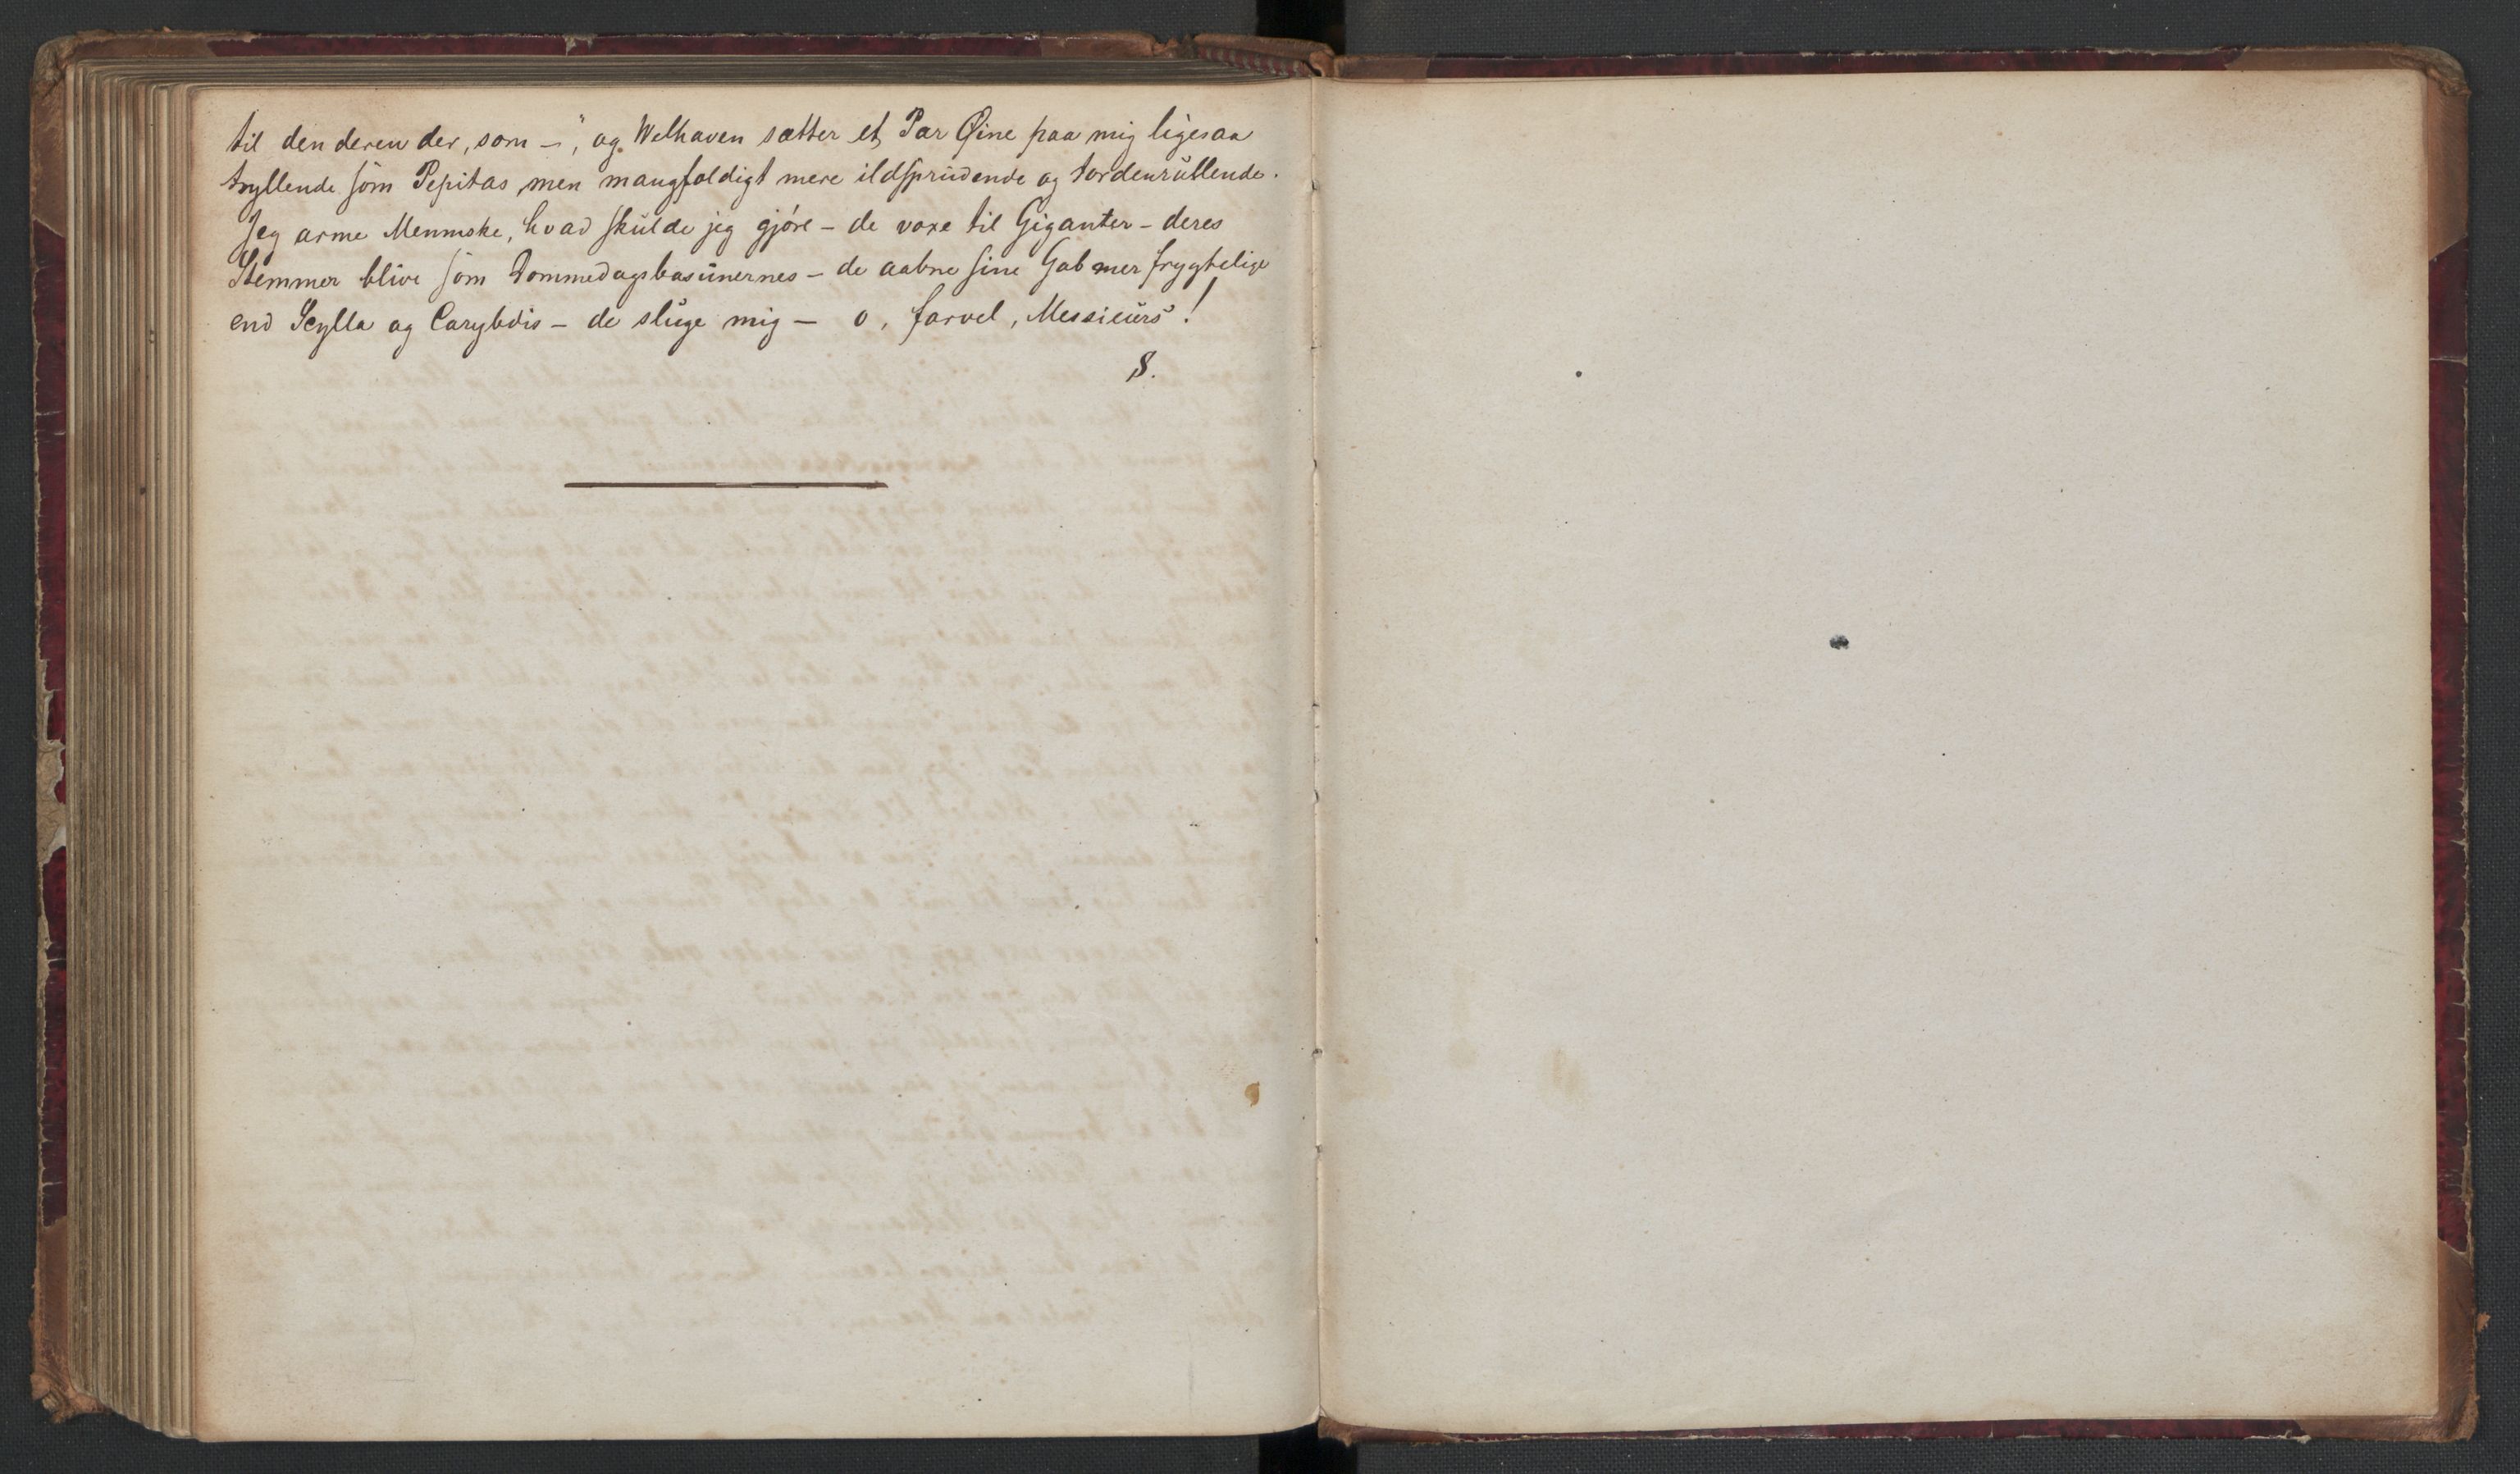 til den deren der, som –", og Welhaven sætter et Par Øine paa mig ligesaa
tryllende som Pepitas, men mangfoldigt mere ildsprudende og tordenrullende.
Jeg arme Menneske, hvad skulde jeg gjöre – de voxe til Giganter – deres
Stemmer blive som Dommedagsbasunernes – de aabne sine Gab mer frygtelige
end Scylla og Carybdis – de sluge mig – o, farvel, Messieurs!
S.